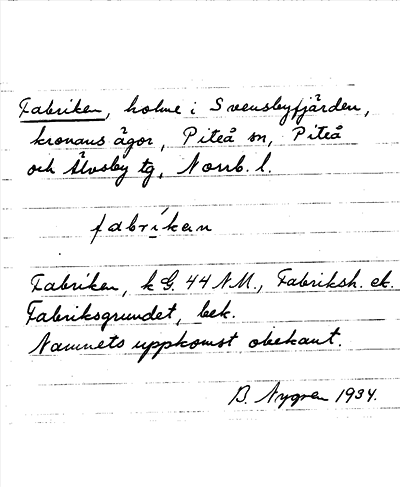 Fabriken, holme i Svensbyfjärden,
kronans ägor, Piteå sn, Piteå
och Älvsby tg, Norrb. l.
fabrikən
Fabriken, k G. 44 NM., Fabriksh. ek.
Fabriksgrundet, bek.
Namnets uppkomst obekant.
B. Nygren 1934.